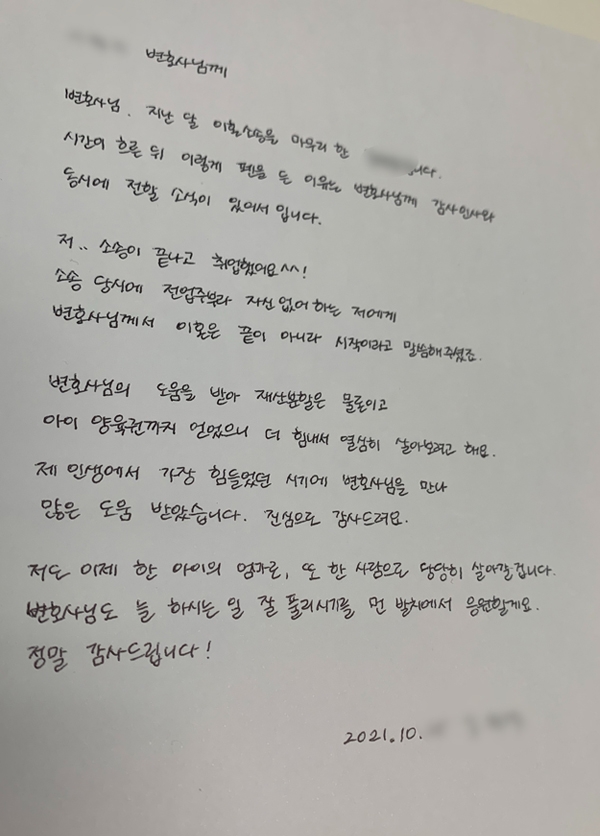 변호사님께
변호사님. 지난 달 이혼소송을 마무리 한 니다.
시간이 흐른 뒤 이렇게 펜을 든 이유는 변호사님께 감사인사와
동시에 전할 소식이 있어서 입니다.
저.. 소송이 끝나고 취업했어요^^!
소송 당시에 전업주부라 자신 없어 하는 저에게
변호사님께서 이혼은 끝이 아니라 시작이라고 말씀해주셨죠.
변호사님의 도움을 받아 재산분할은 물론이고
아이 양육권까지 얻었으니 더 힘내서 열심히 살아보려고 해요.
제 인생에서 가장 힘들었던 시기에 변호사님을 만나
많은 도움 받았습니다. 진심으로 감사드려요.
저도 이제 한 아이의 엄마로, 또 한 사람으로 당당히 살아갈겁니다.
변호사님도 늘 하시는 일 잘 풀리시기를 먼 발치에서 응원할게요.
정말 감사드립니다!
2021.10.